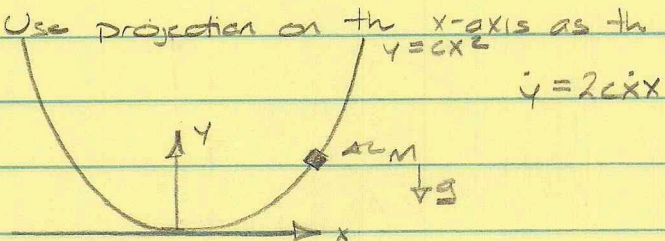 Use projection on th x-axis as th
y = cx²
ẏ = 2cẋx
y
M
g
x